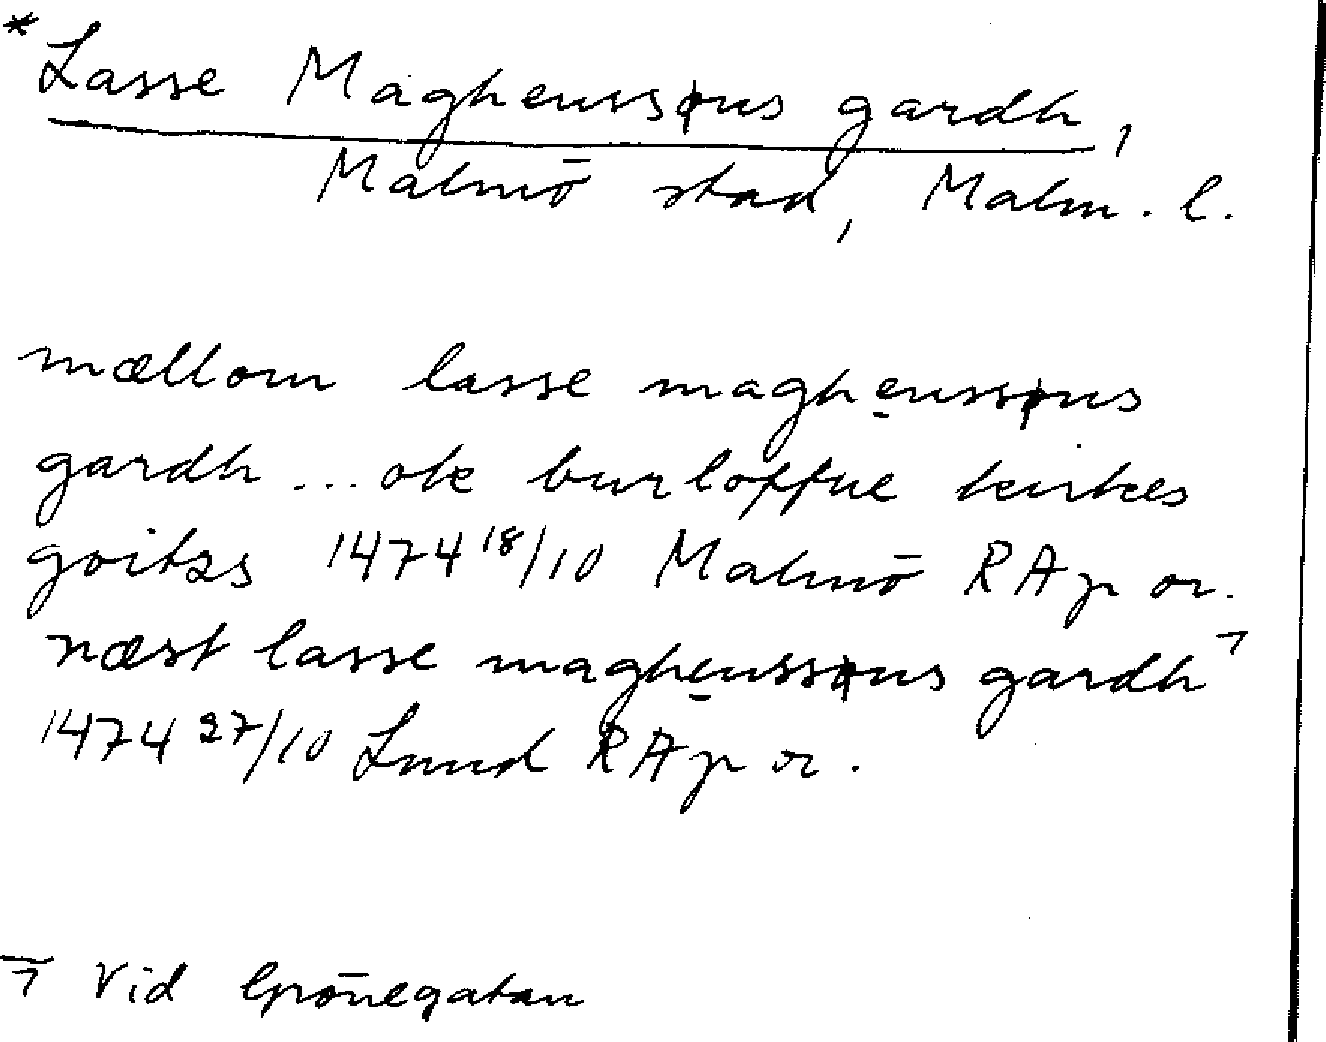 *Lasse Maghenssøns gardh,
Malmö stad, Malm. l.
mællom lasse maghenssøns
gardh ... ok burloffue kirkes
goitzs 1474 18/10 Malmö RAp or.
næst lasse maghenssøns gardh ⁊
1474 27/10 Lund RAp or.
⁊ Vid Grönegatan